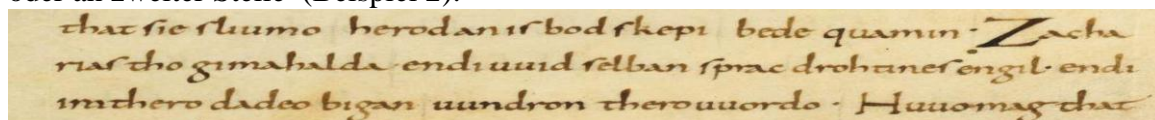 oder an zweiter Stelle“ (Beispiel 2).
that sie sliumo herodan is bodskepi bede quamin · Zacha
rias tho gimahalda · endi uuid selban sprac drohtines engil · endi
im thero dadeo bigan uundron thero uuordo · Huuo mag that